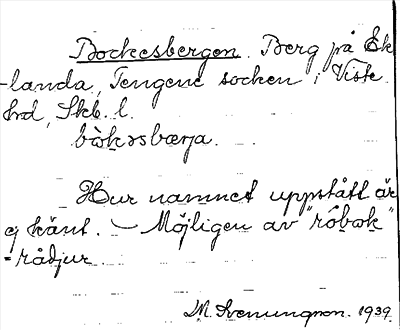 Bockesbergen. Berg på Ek
-landa, Tengene socken i Viste
hd, Skb. l.
bòk̬əsbærja.
Hur namnet uppstått är
ej känt. – Möjligen av "róbok"
= rådjur.
M. Svenungson. 1939.